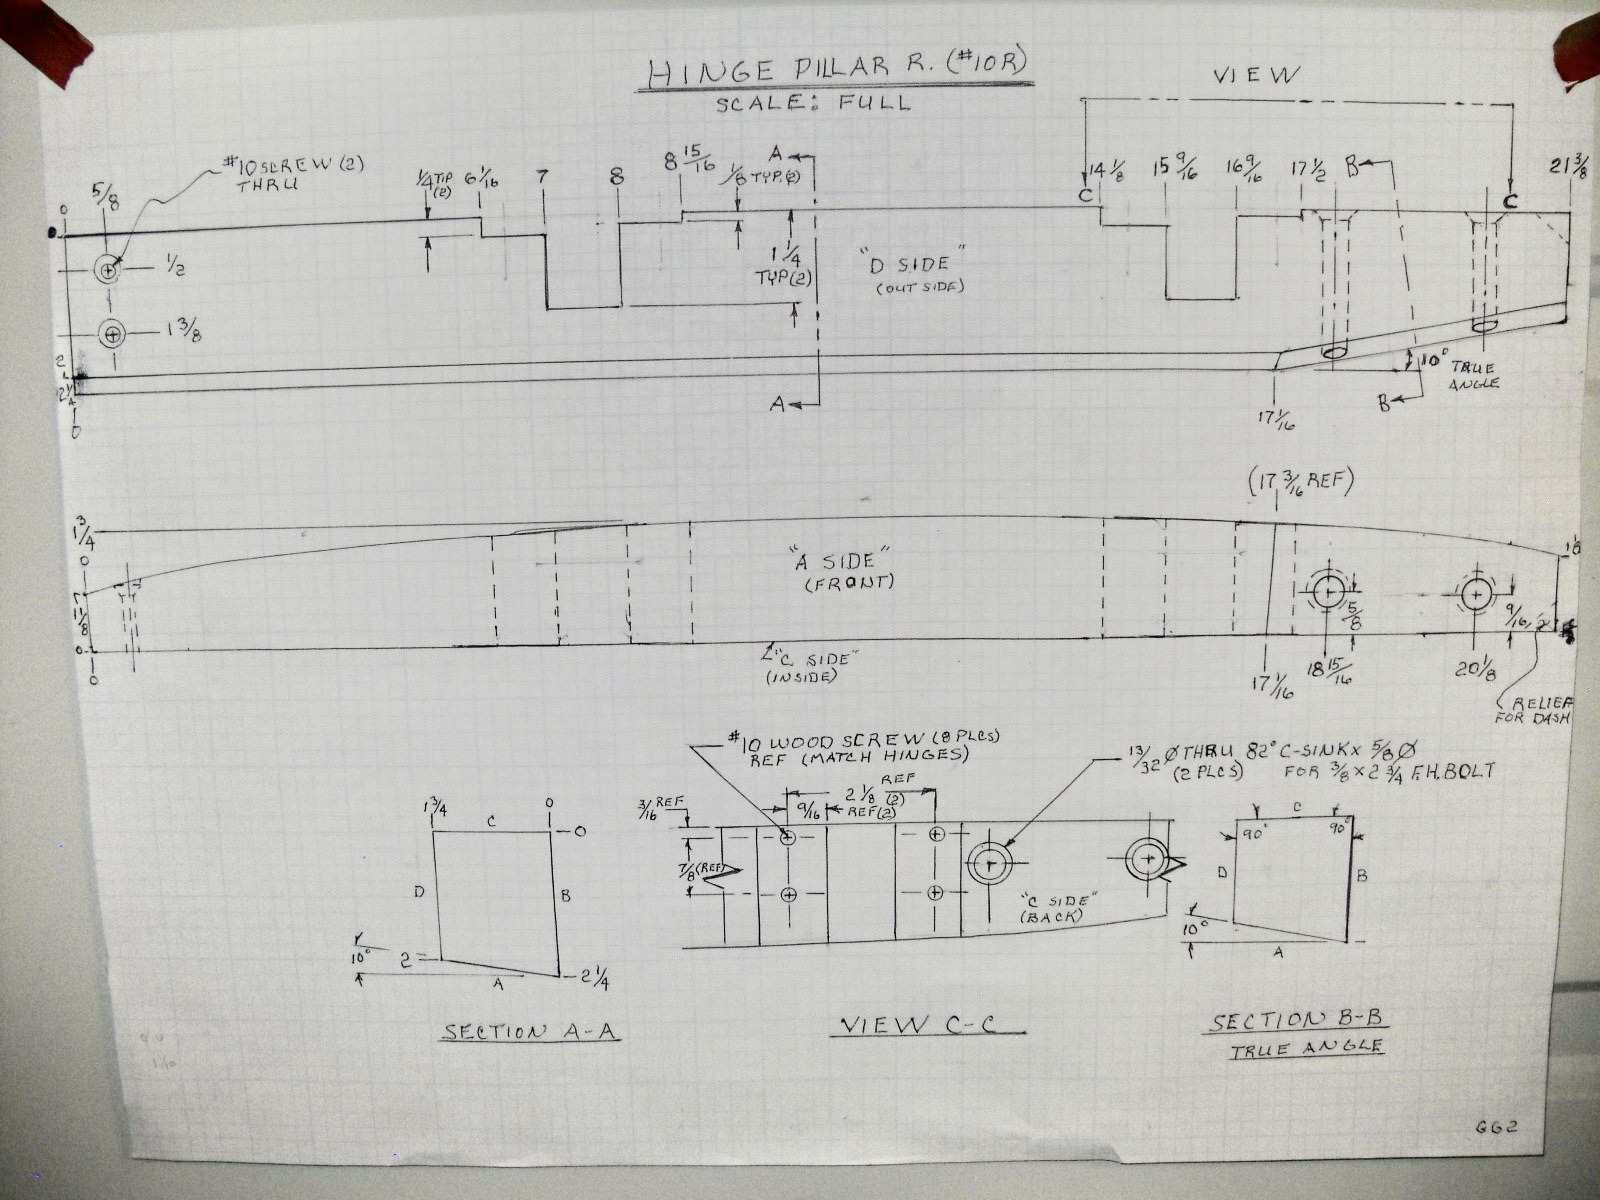 HINGE PILLAR R. (#10R)
SCALE: FULL
VIEW
#10 SCREW (2)
THRU
0
5/8
1/4 TIP
(2)
6 1/16
7
8
8 15/16
1/8 TYP.(2)
A
C
14 1/8
15 9/16
16 9/16
17 1/2
B
C
21 3/8
1/2
1 3/8
1 1/4
TYP(2)
"D SIDE"
(OUT SIDE)
2
2 1/4
0
A
10° TRUE
ANGLE
B
17 1/16
(17 3/16 REF)
1 3/4
0
1 1/8
0
0
"A SIDE"
(FRONT)
5/8
9/16
"C SIDE"
(INSIDE)
17 1/16
18 15/16
20 1/8
RELIEF
FOR DASH
#10 WOOD SCREW (8 PLCS)
REF (MATCH HINGES)
13/32 Ø THRU 82° C-SINK x 5/8 Ø
(2 PLCS) FOR 3/8 x 2 3/4 F.H. BOLT
3/16 REF
9/16
REF(2)
2 1/8
REF
(2)
7/8 (REF)
"C SIDE"
(BACK)
1 3/4
0
C
0
D
B
10°
2
A
2 1/4
C
90°
90°
D
B
10°
A
SECTION A-A
VIEW C-C
SECTION B-B
TRUE ANGLE
GG2